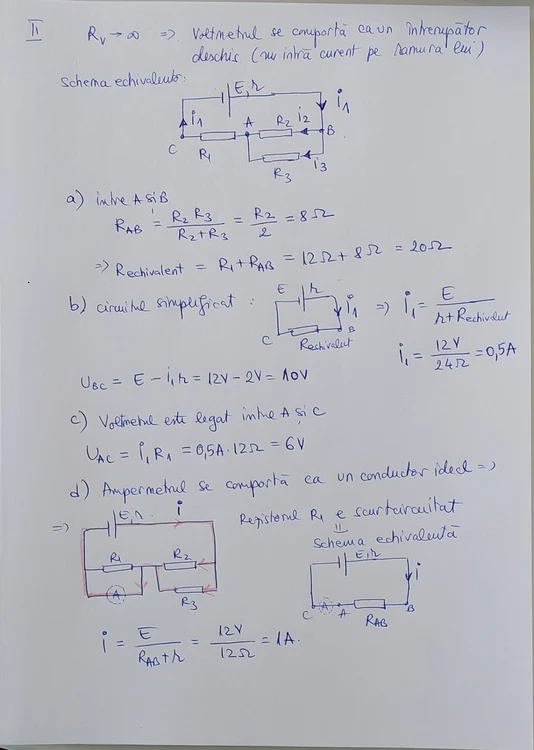 II R_V → ∞ => Voltmetrul se comportă ca un întrerupător
deschis (nu intră curent pe ramura lui)
Schema echivalentă:
E, r
i1 i1
A R2 i2 B
C R1
R3 i3
a) între A și B
R_AB = R2 R3 / (R2 + R3) = R2 / 2 = 8 Ω
=> Rechivalent = R1 + R_AB = 12 Ω + 8 Ω = 20 Ω
b) circuitul simplificat :
E r
i1 => i1 = E / (r + Rechivalent)
C Rechivalent B
i1 = 12V / 24Ω = 0,5A
U_BC = E - i1 r = 12V - 2V = 10V
c) Voltmetrul este legat între A și C
U_AC = i1 R1 = 0,5A · 12Ω = 6V
d) Ampermetrul se comportă ca un conductor ideal =>
=> E, r i
Rezistorul R1 e scurtcircuitat
=
Schema echivalentă
R1 R2
A
R3
E, r
i
C A A R_AB B
i = E / (R_AB + r) = 12V / 12Ω = 1A.